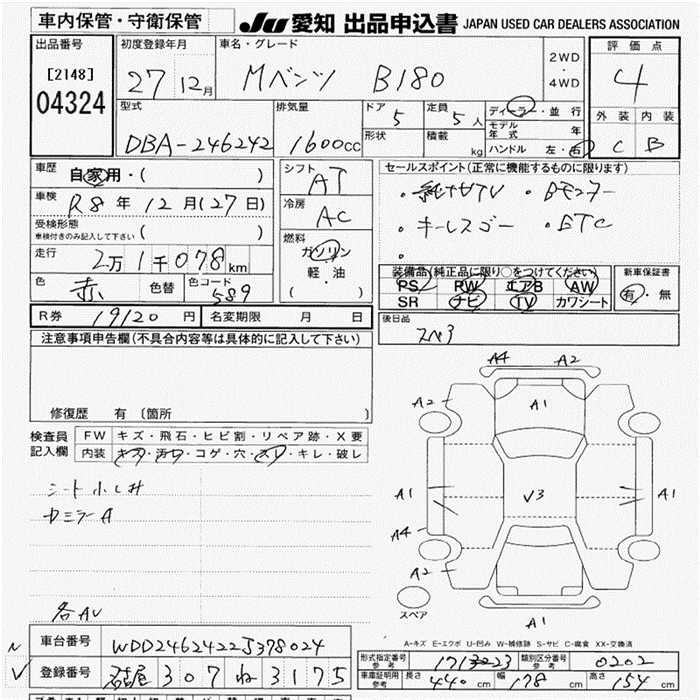 車内保管・守衛保管 JU 愛知 出品申込書 JAPAN USED CAR DEALERS ASSOCIATION
出品番号 初度登録年月 車名・グレード 2WD・4WD 評価点
[2148] 04324 27 12月 Mベンツ B180 4
型式 排気量 ドア 5 定員 5人 ディーラー・並行 外装 内装
DBA-246242 1600cc 形状 積載 kg モデル年式 年 C B
ハンドル 左・右
車歴 自家用・( ) シフト AT セールスポイント(正常に機能するものに限ります)
車検 R8年12月(27日) 冷房 AC ・純ナビTV ・Bモニター
受検形態 ・キーレスゴー ・ETC
車検付きのみ記入して下さい ( ) 燃料 ガソリン ・
走行 2万1千078km 軽・油 装備品(純正品に限り○をつけてください) 新車保証書
色 赤 色替 色コード 589 ( ) PS PW エアB AW 有・無
SR ナビ TV カワシート
R券 19120円 名変期限 月 日 後日品
注意事項申告欄(不具合内容等は具体的に記入して下さい) スペ3
修復歴 有 〔箇所 〕
検査員記入欄 FW キズ・飛石・ヒビ割・リペア跡・X要
内装 キズ・汚れ・コゲ・穴・スレ・キレ・破レ
A4 A2
A2 A1
A1 V3 A1
A4
A2
A1
シート小しわ
カミラーA
各AU
スペア
A-キズ E-エクボ U-凹み W-補修跡 S-サビ C-腐食 XX-交換済
車台番号 WDD2462422J378024
登録番号 名古屋 307 ね 3175
型式指定番号 参考 類別区分番号 参考 0202
車庫証明用 参考 長さ 440cm 幅 178cm 高さ 154cm